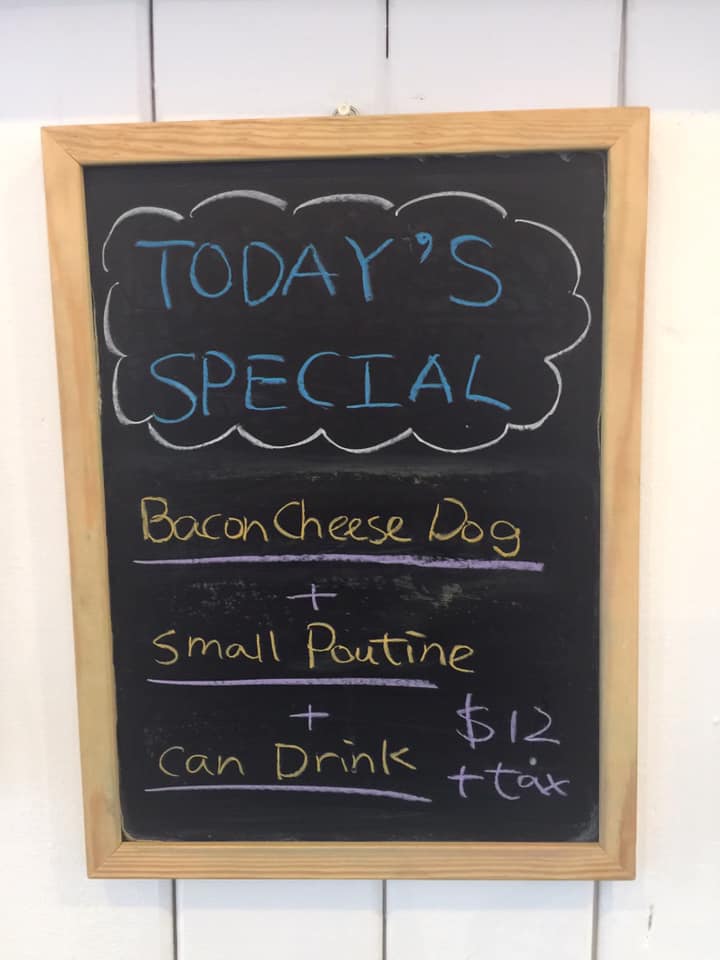 TODAY'S
SPECIAL
Bacon Cheese Dog
+
small Poutine
+
can Drink
$12
+ tax